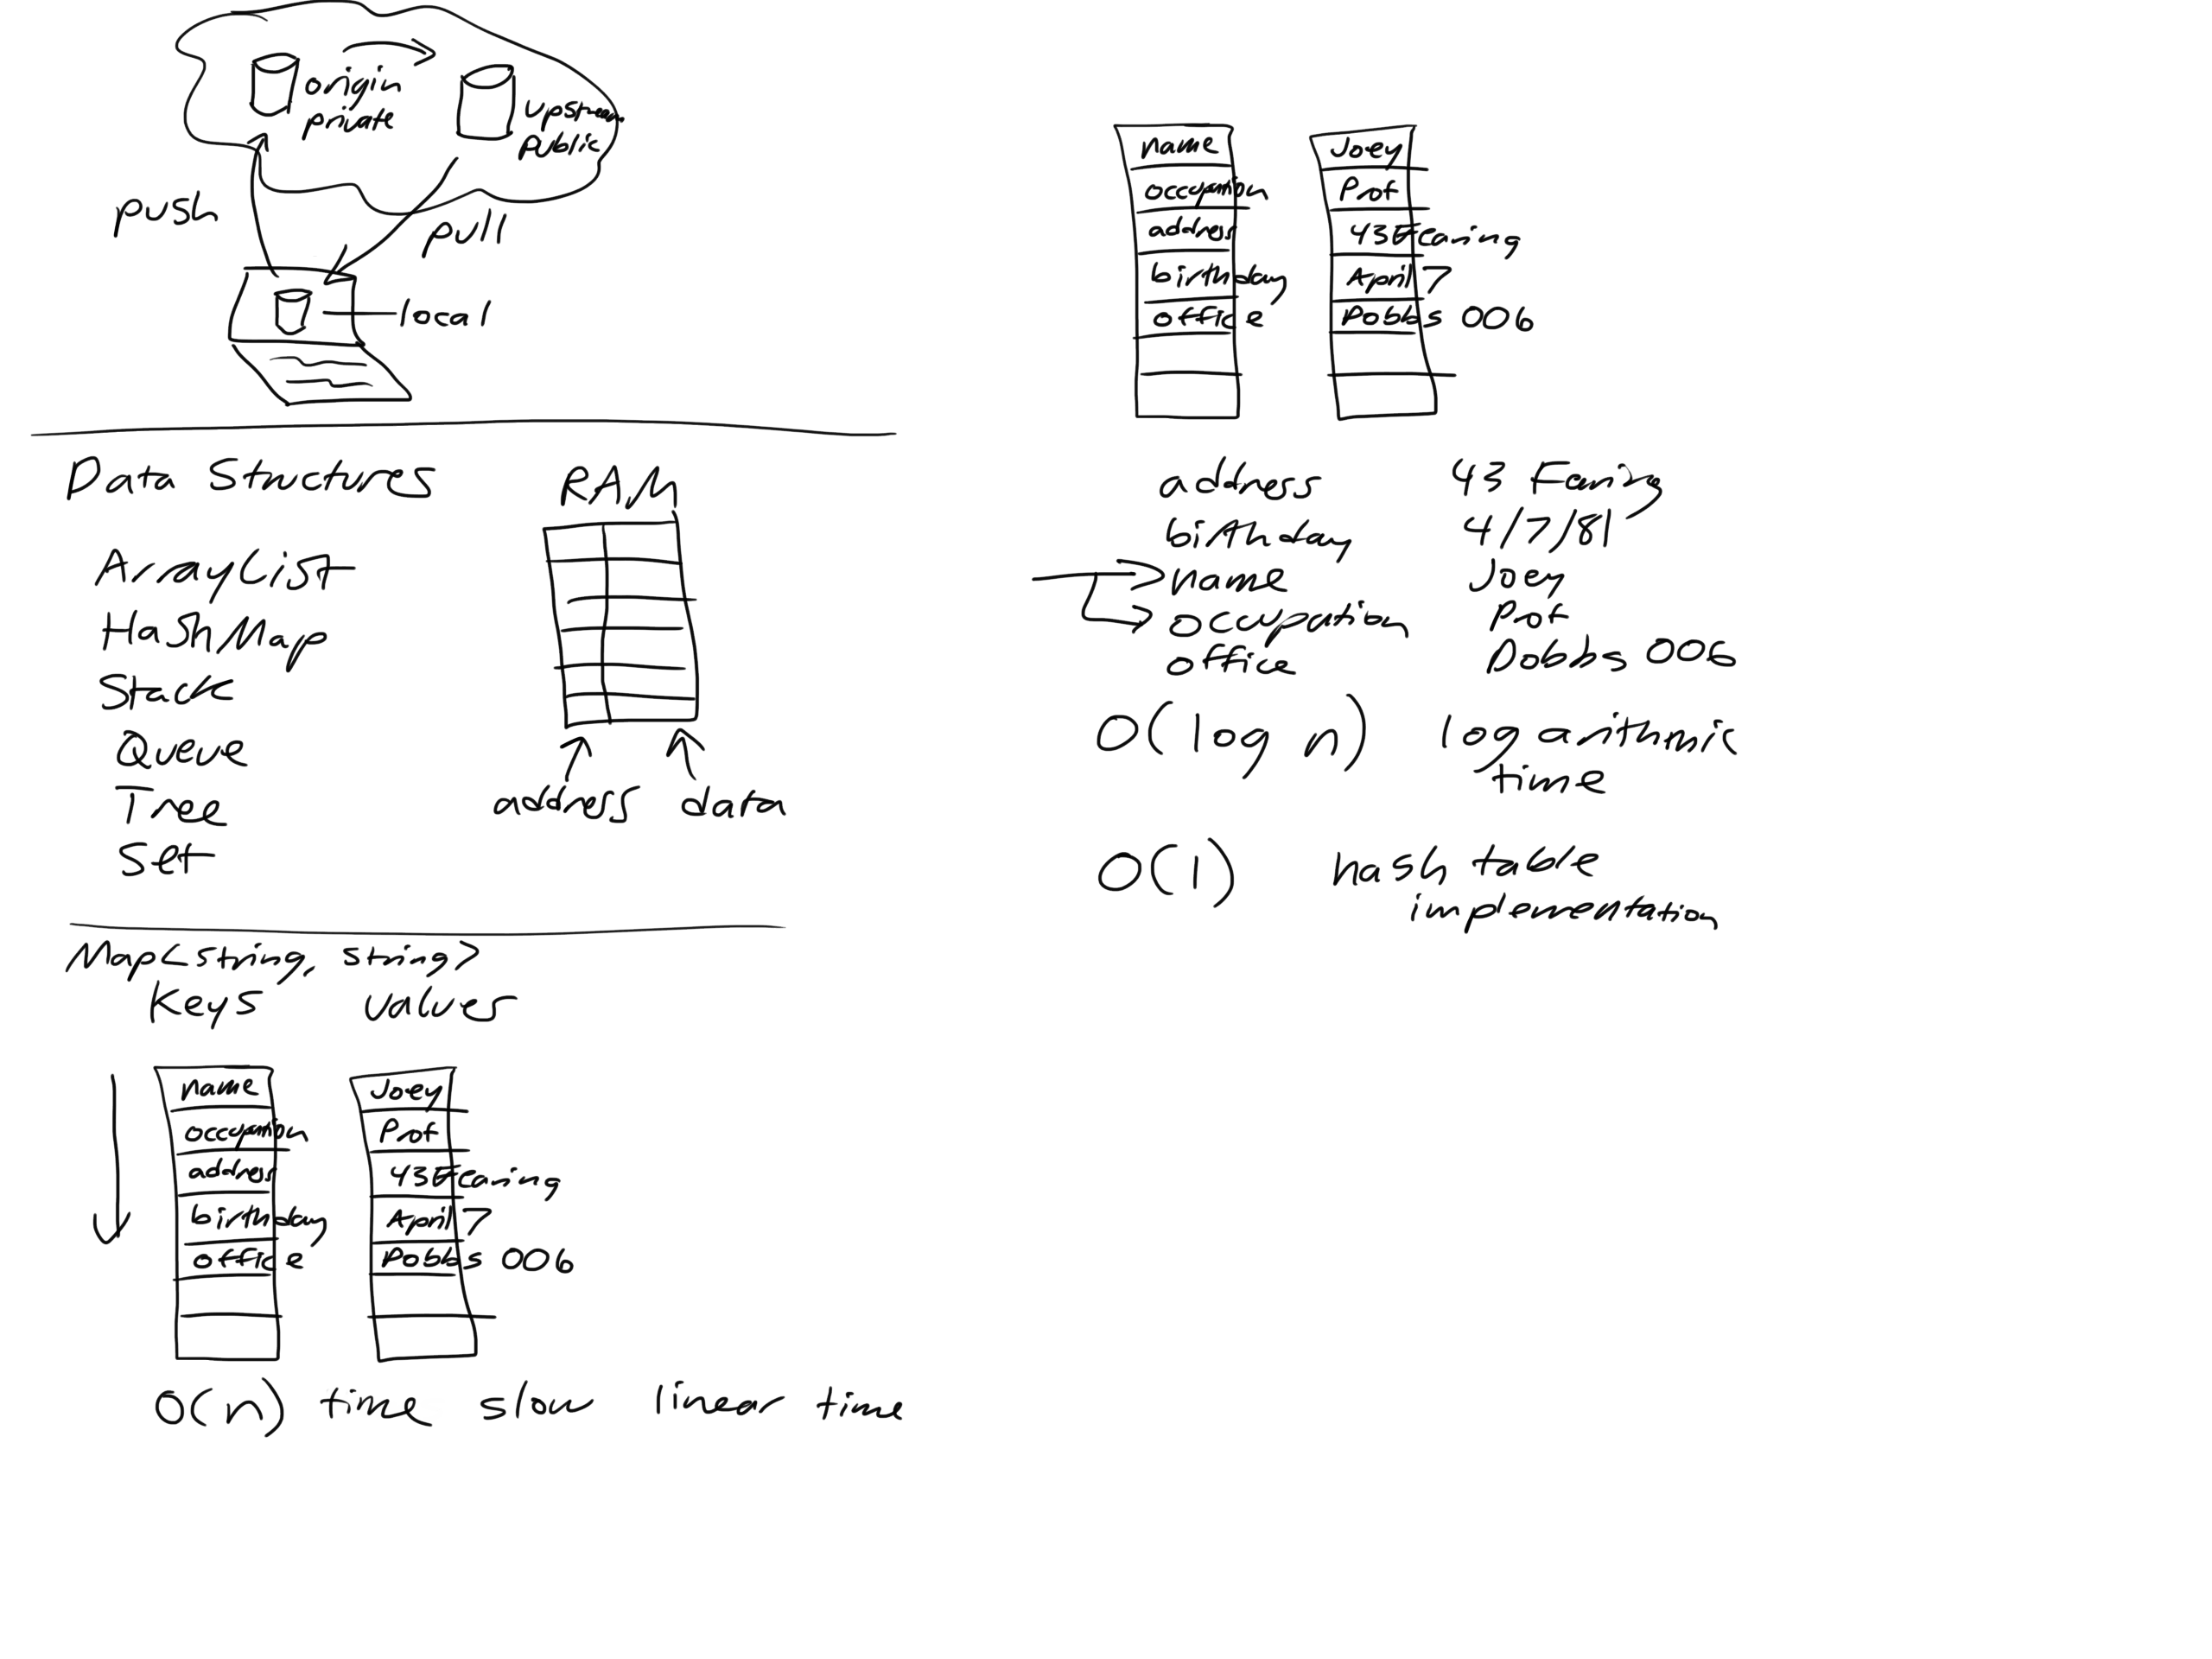 origin
private
upstream
public
push
pull
local
Data Structures
RAM
ArrayList
HashMap
Stack
Queue
Tree
Set
address data
Map<string, string>
Keys values
name Joey
occupation Prof
address 43 Fearing
birthday April 7
office Dobbs 006
O(n) time slow linear time
name Joey
occupation Prof
address 43 Fearing
birthday April 7
office Dobbs 006
address 43 Fearing
birthday 4/7/81
name Joey
occupation Prof
office Dobbs 006
O(log n) logarithmic
time
O(1) hash table
implementation